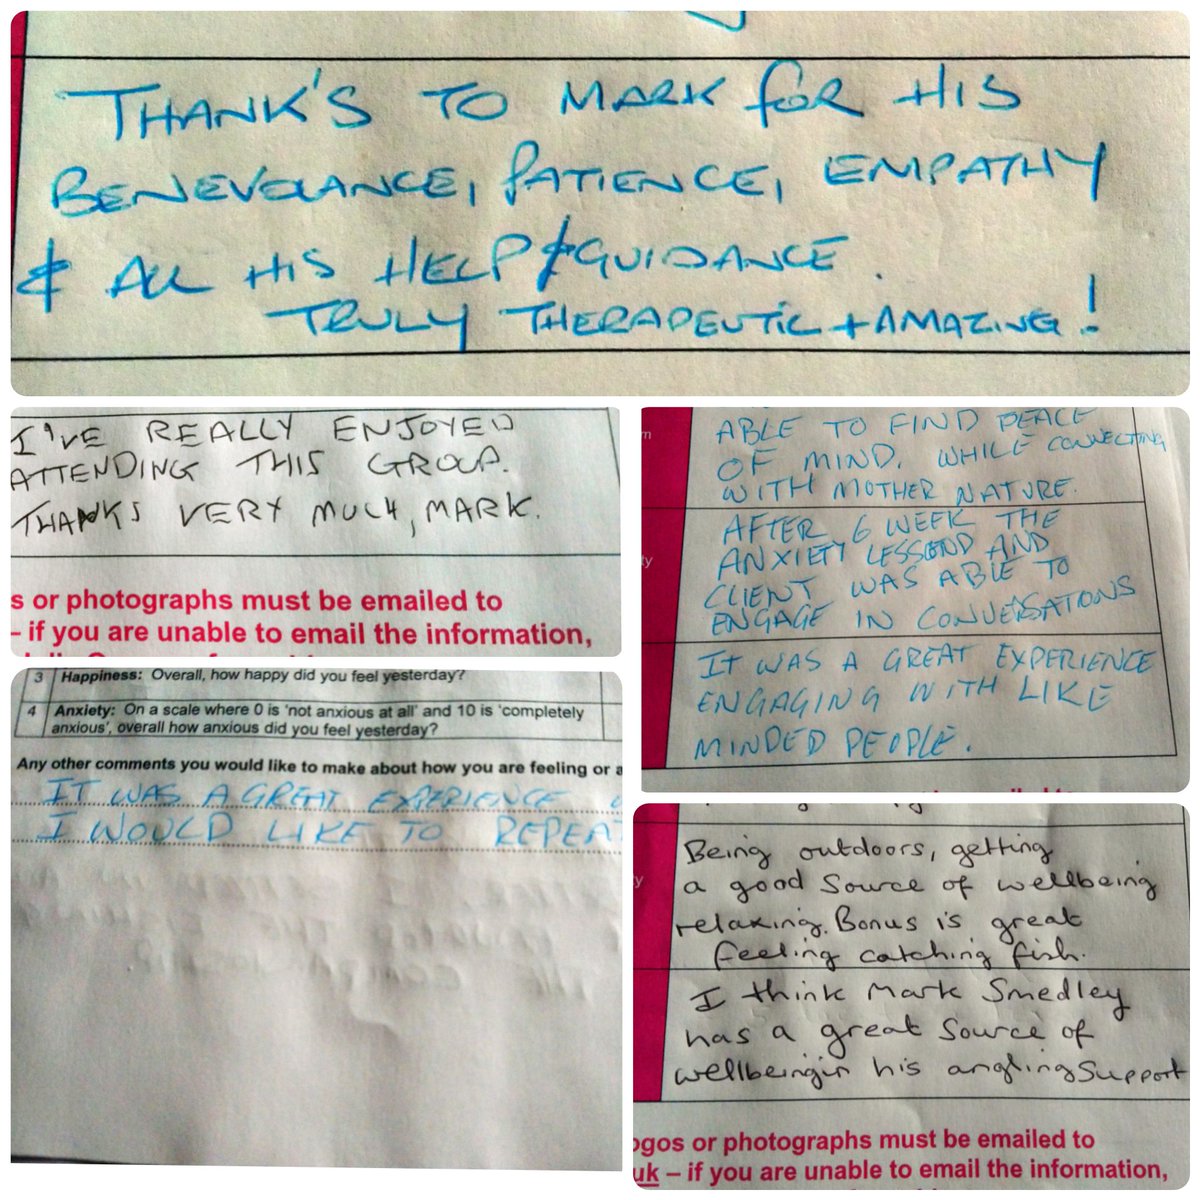 THANK'S TO MARK for HIS
BENEVOLANCE, PATIENCE, EMPATHY
& ALL HIS HELP & GUIDANCE.
TRULY THERAPEUTIC + AMAZING!
I'VE REALLY ENJOYED
ATTENDING THIS GROUP.
THANKS VERY MUCH, MARK.
s or photographs must be emailed to
– if you are unable to email the information,
3 Happiness: Overall, how happy did you feel yesterday?
4 Anxiety: On a scale where 0 is 'not anxious at all' and 10 is 'completely
anxious', overall how anxious did you feel yesterday?
Any other comments you would like to make about how you are feeling or a
IT WAS A GREAT EXPERIENCE
I WOULD LIKE TO REPEAT
ABLE TO FIND PEACE
OF MIND. WHILE CONNECTING
WITH MOTHER NATURE.
AFTER 6 WEEK THE
ANXIETY LESSOND AND
CLIENT WAS ABLE TO
ENGAGE IN CONVERSATIONS
IT WAS A GREAT EXPERIENCE
ENGAGING WITH LIKE
MINDED PEOPLE.
Being outdoors, getting
a good source of wellbeing
relaxing. Bonus is great
feeling catching fish.
I think Mark Smedley
has a great source of
wellbeing in his angling support
ogos or photographs must be emailed to
uk – if you are unable to email the information,